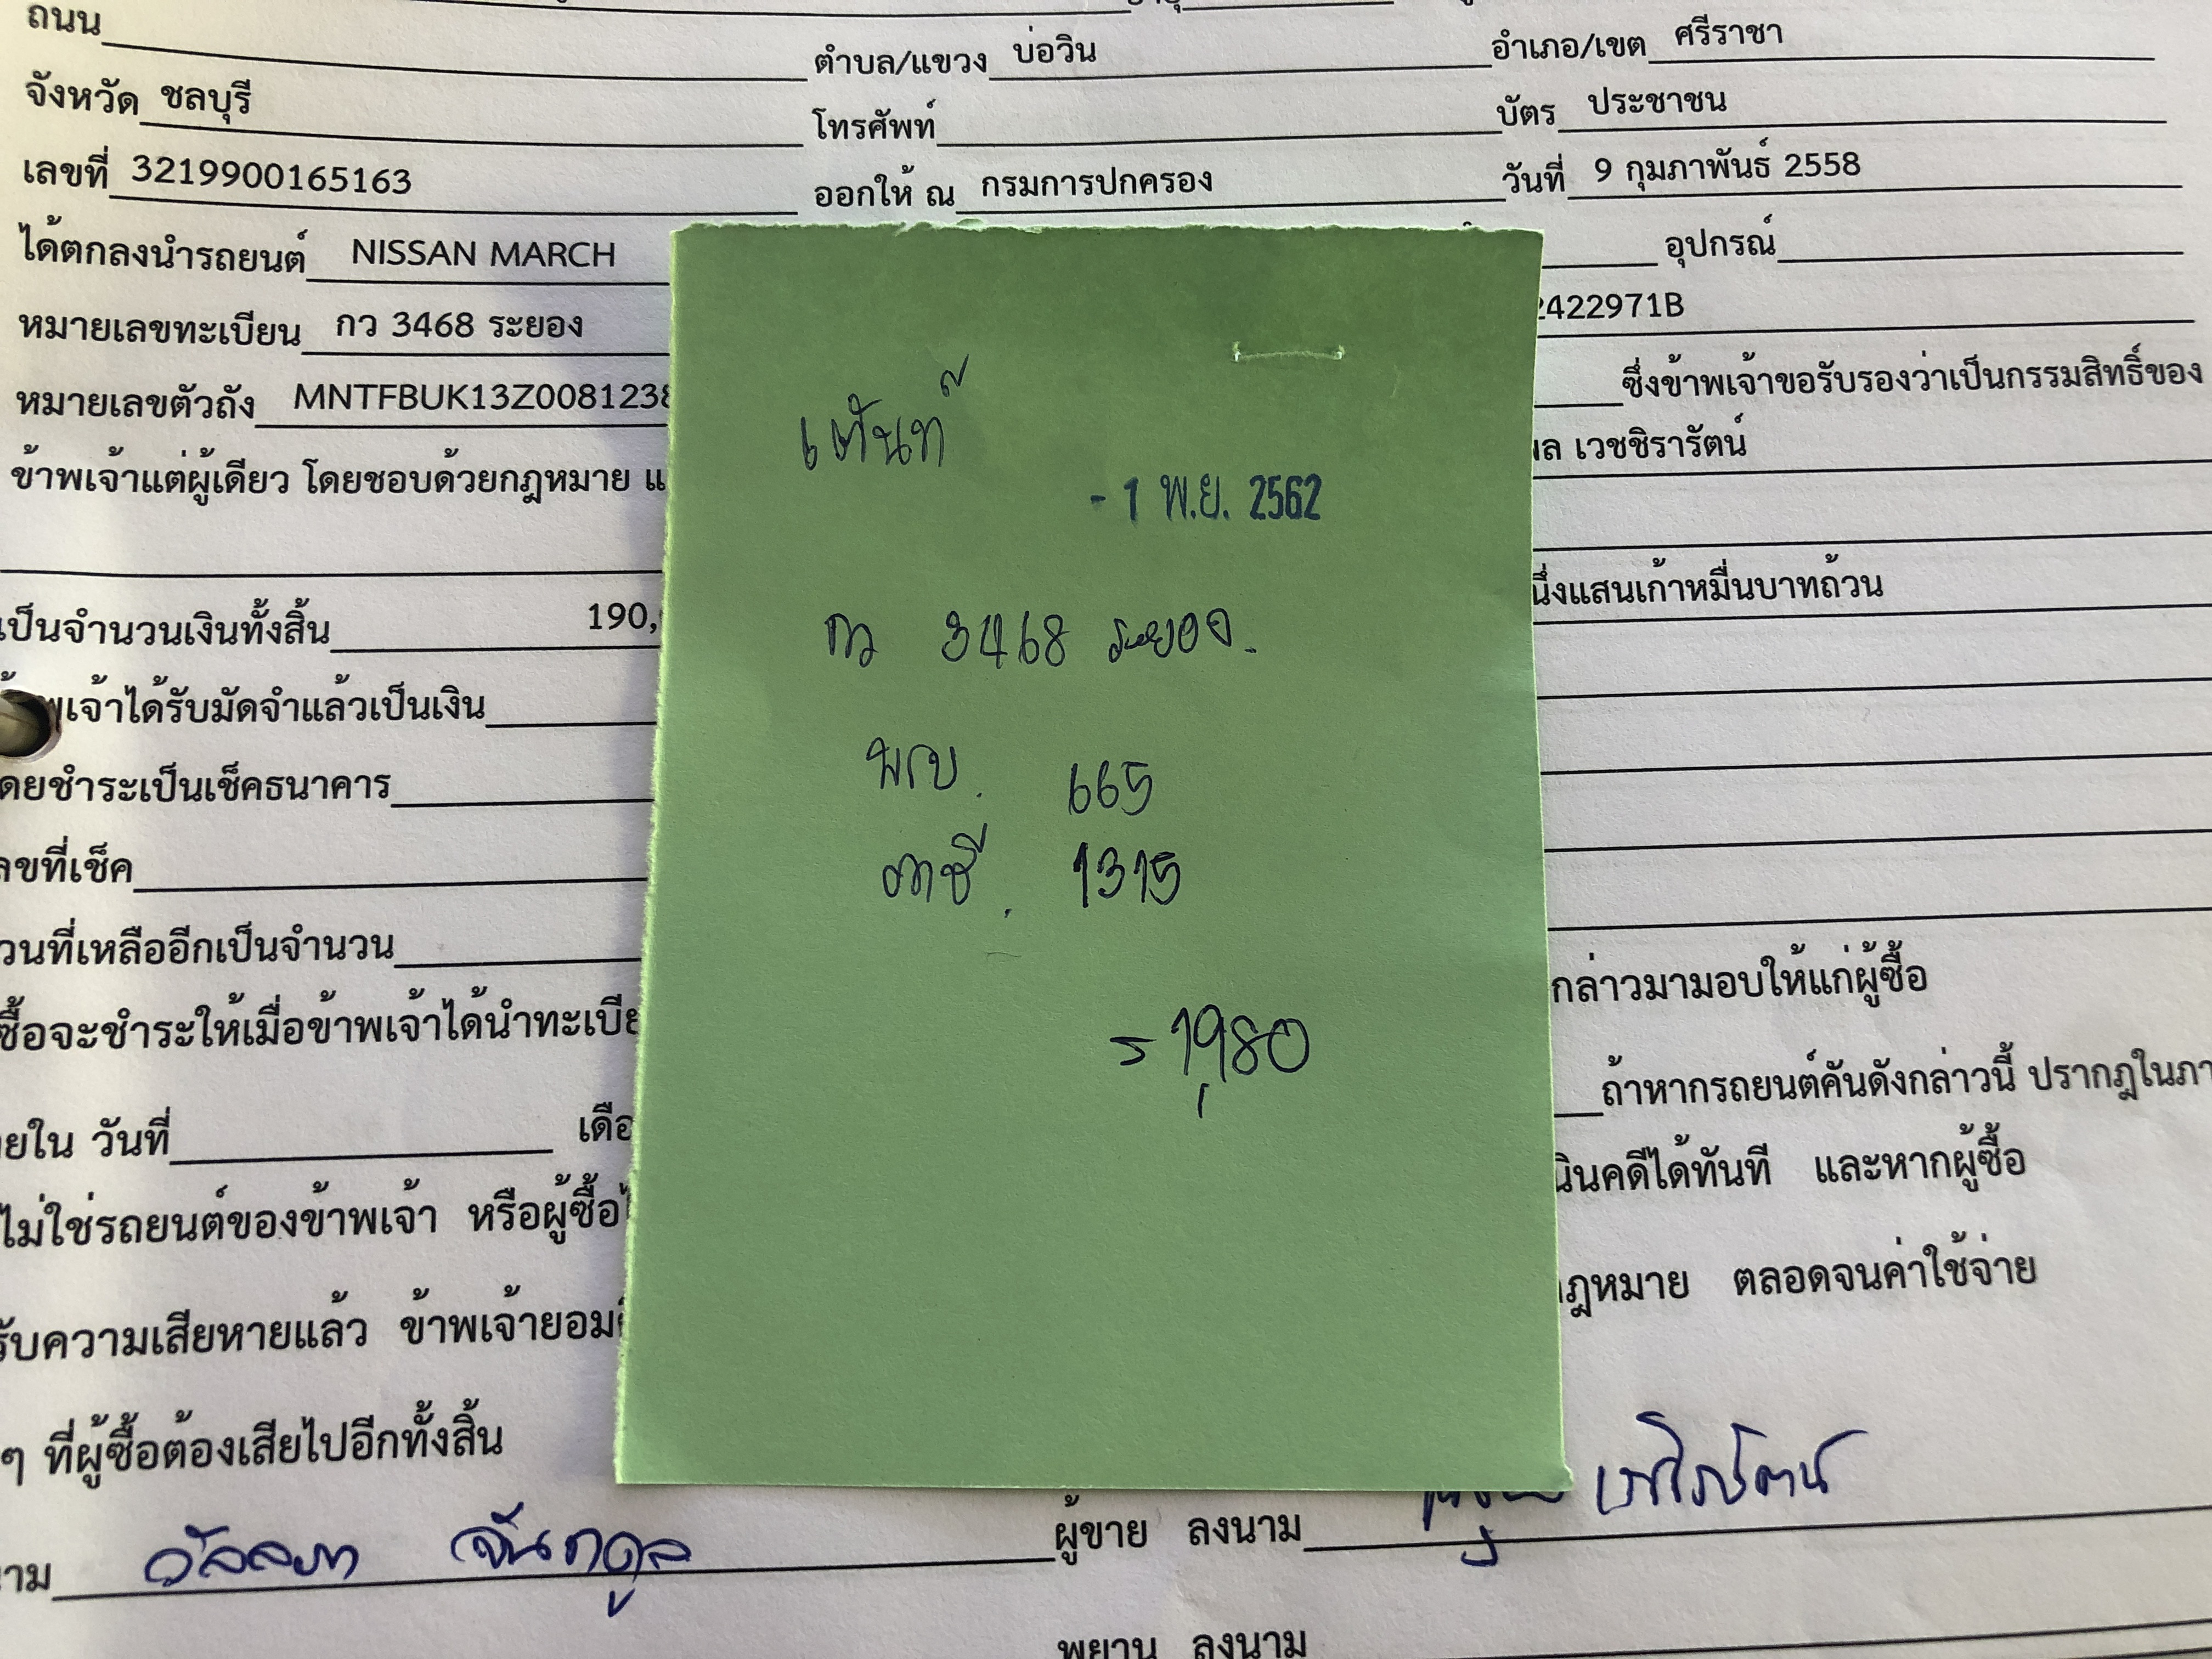 ถนน
ตำบล/แขวง บ่อวิน อำเภอ/เขต ศรีราชา
จังหวัด ชลบุรี โทรศัพท์ บัตร ประชาชน
เลขที่ 3219900165163 ออกให้ ณ กรมการปกครอง วันที่ 9 กุมภาพันธ์ 2558
ได้ตกลงนำรถยนต์ NISSAN MARCH อุปกรณ์
หมายเลขทะเบียน กว 3468 ระยอง 2422971B
หมายเลขตัวถัง MNTFBUK13Z0081238 ซึ่งข้าพเจ้าขอรับรองว่าเป็นกรรมสิทธิ์ของ
ข้าพเจ้าแต่ผู้เดียว โดยชอบด้วยกฎหมาย เวชชิรารัตน์
เป็นจำนวนเงินทั้งสิ้น 190, นึ่งแสนเก้าหมื่นบาทถ้วน
พเจ้าได้รับมัดจำแล้วเป็นเงิน
ดยชำระเป็นเช็คธนาคาร
ลขที่เช็ค
วนที่เหลืออีกเป็นจำนวน กล่าวมามอบให้แก่ผู้ซื้อ
ซื้อจะชำระให้เมื่อข้าพเจ้าได้นำทะเบีย
ถ้าหากรถยนต์คันดังกล่าวนี้ ปรากฏในภา
ยใน วันที่ เดือ
นินคดีได้ทันที และหากผู้ซื้อ
ไม่ใช่รถยนต์ของข้าพเจ้า หรือผู้ซื้อ
ฎหมาย ตลอดจนค่าใช้จ่าย
รับความเสียหายแล้ว ข้าพเจ้ายอม
ๆ ที่ผู้ซื้อต้องเสียไปอีกทั้งสิ้น
เต้นท์
- 1 พ.ย. 2562
กว 3468 ระยอง.
พรบ. 665
ภาษี. 1315
= 1,980
าม วัลลภา ผู้ขาย ลงนาม
พยาน ลงนาม